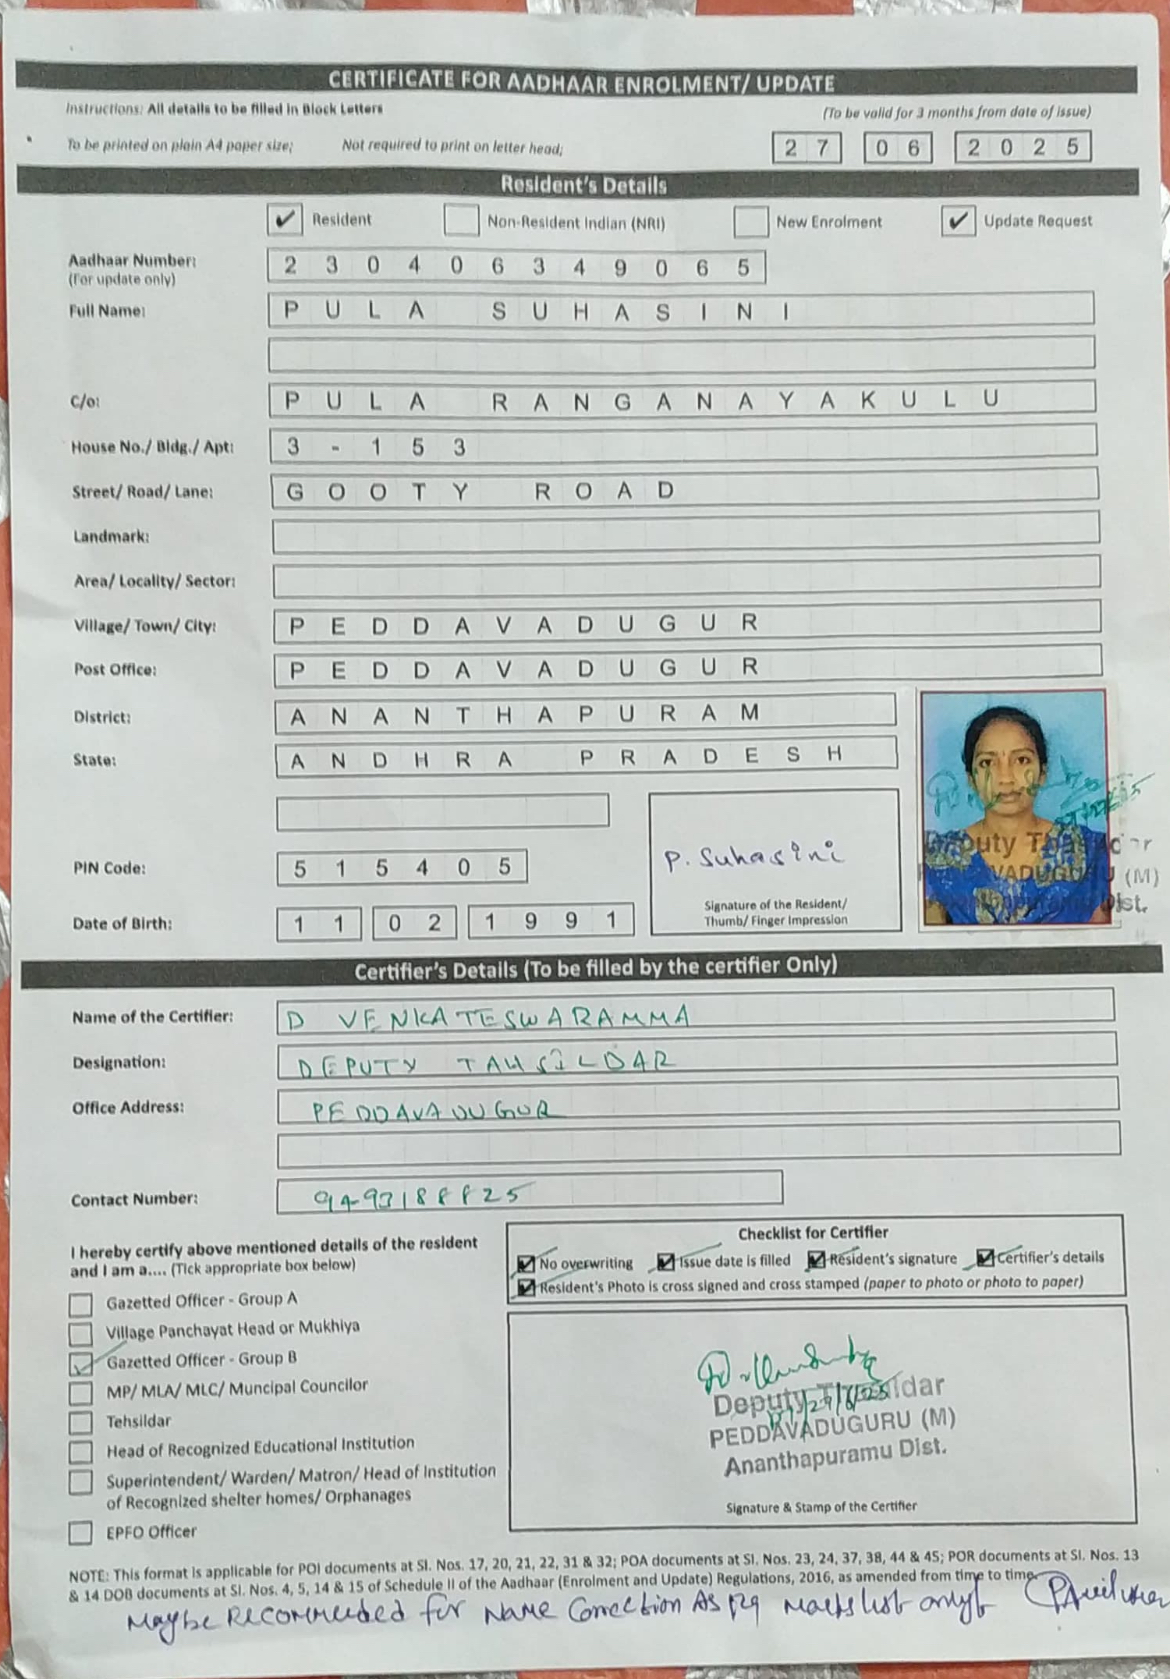 CERTIFICATE FOR AADHAAR ENROLMENT/ UPDATE
Instructions: All details to be filled in Block Letters
(To be valid for 3 months from date of issue)
To be printed on plain A4 paper size; Not required to print on letter head;
27 06 2025
Resident's Details
✔ Resident Non-Resident Indian (NRI) New Enrolment ✔ Update Request
Aadhaar Number: 230406349065
(For update only)
Full Name: PULA SUHASINI
C/o: PULA RANGANAYAKULU
House No./ Bldg./ Apt: 3-153
Street/ Road/ Lane: GOOTY ROAD
Landmark:
Area/ Locality/ Sector:
Village/ Town/ City: PEDDAVADUGUR
Post Office: PEDDAVADUGUR
District: ANANTHAPURAM
State: ANDHRA PRADESH
PIN Code: 515405
P. Suhasini
Signature of the Resident/
Thumb/ Finger Impression
Date of Birth: 11 02 1991
Deputy
(M)
Dist.
Certifier's Details (To be filled by the certifier Only)
Name of the Certifier: D VENKATESWARAMMA
Designation: DEPUTY TAHSILDAR
Office Address: PEDDAVADUGUR
Contact Number: 9493188825
I hereby certify above mentioned details of the resident
and I am a.... (Tick appropriate box below)
Gazetted Officer - Group A
Village Panchayat Head or Mukhiya
Gazetted Officer - Group B
MP/ MLA/ MLC/ Muncipal Councilor
Tehsildar
Head of Recognized Educational Institution
Superintendent/ Warden/ Matron/ Head of Institution
of Recognized shelter homes/ Orphanages
EPFO Officer
Checklist for Certifier
No overwriting Issue date is filled Resident's signature Certifier's details
Resident's Photo is cross signed and cross stamped (paper to photo or photo to paper)
Deputy
PEDDAVADUGURU (M)
Ananthapuramu Dist.
Signature & Stamp of the Certifier
NOTE: This format is applicable for POI documents at SI. Nos. 17, 20, 21, 22, 31 & 32; POA documents at SI. Nos. 23, 24, 37, 38, 44 & 45; POR documents at SI. Nos. 13
& 14 DOB documents at SI. Nos. 4, 5, 14 & 15 of Schedule II of the Aadhaar (Enrolment and Update) Regulations, 2016, as amended from time to time.
May be Recommended for Name Correction As Marks list only